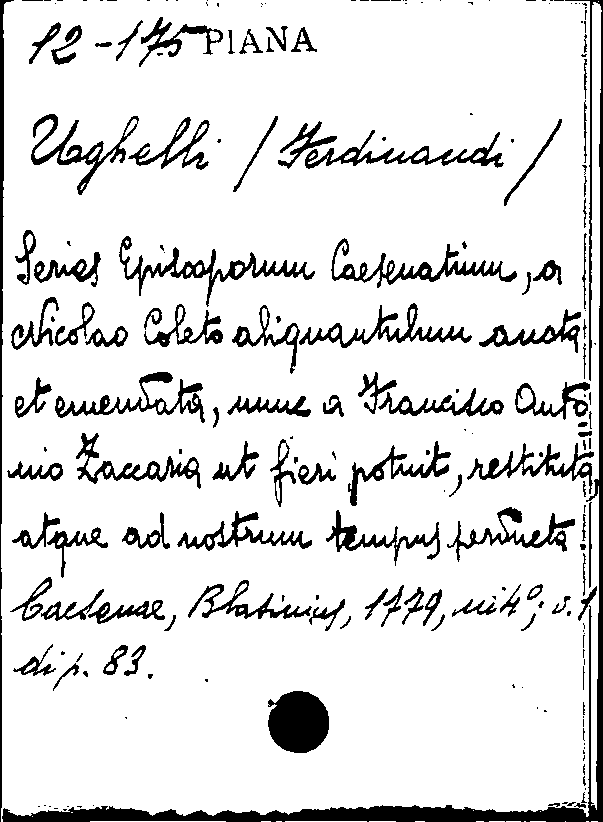 12-175 PIANA
Ughelli / Ferdinandi /
Series Episcoporum Caesenatium, a
Nicolao Coleto aliquantulum aucta
et emendata, nunc a Francisco Anto
nio Zaccaria ut fieri potuit, restituta,
atque ad nostrum tempus perducta.
Caesenae, Blasinius, 1779, in 4°; v. 1
di p. 83.